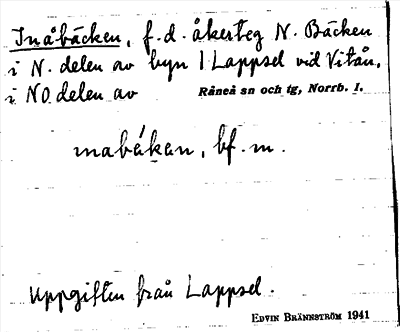 Inåbäcken, f.d. åkerteg N. Bäcken
i N. delen av byn i Lappsel vid Vitån,
i NO delen av Råneå sn och tg, Norrb. l.
bf. m.
Uppgiften från Lappsel.
EDVIN BRÄNNSTRÖM 1941